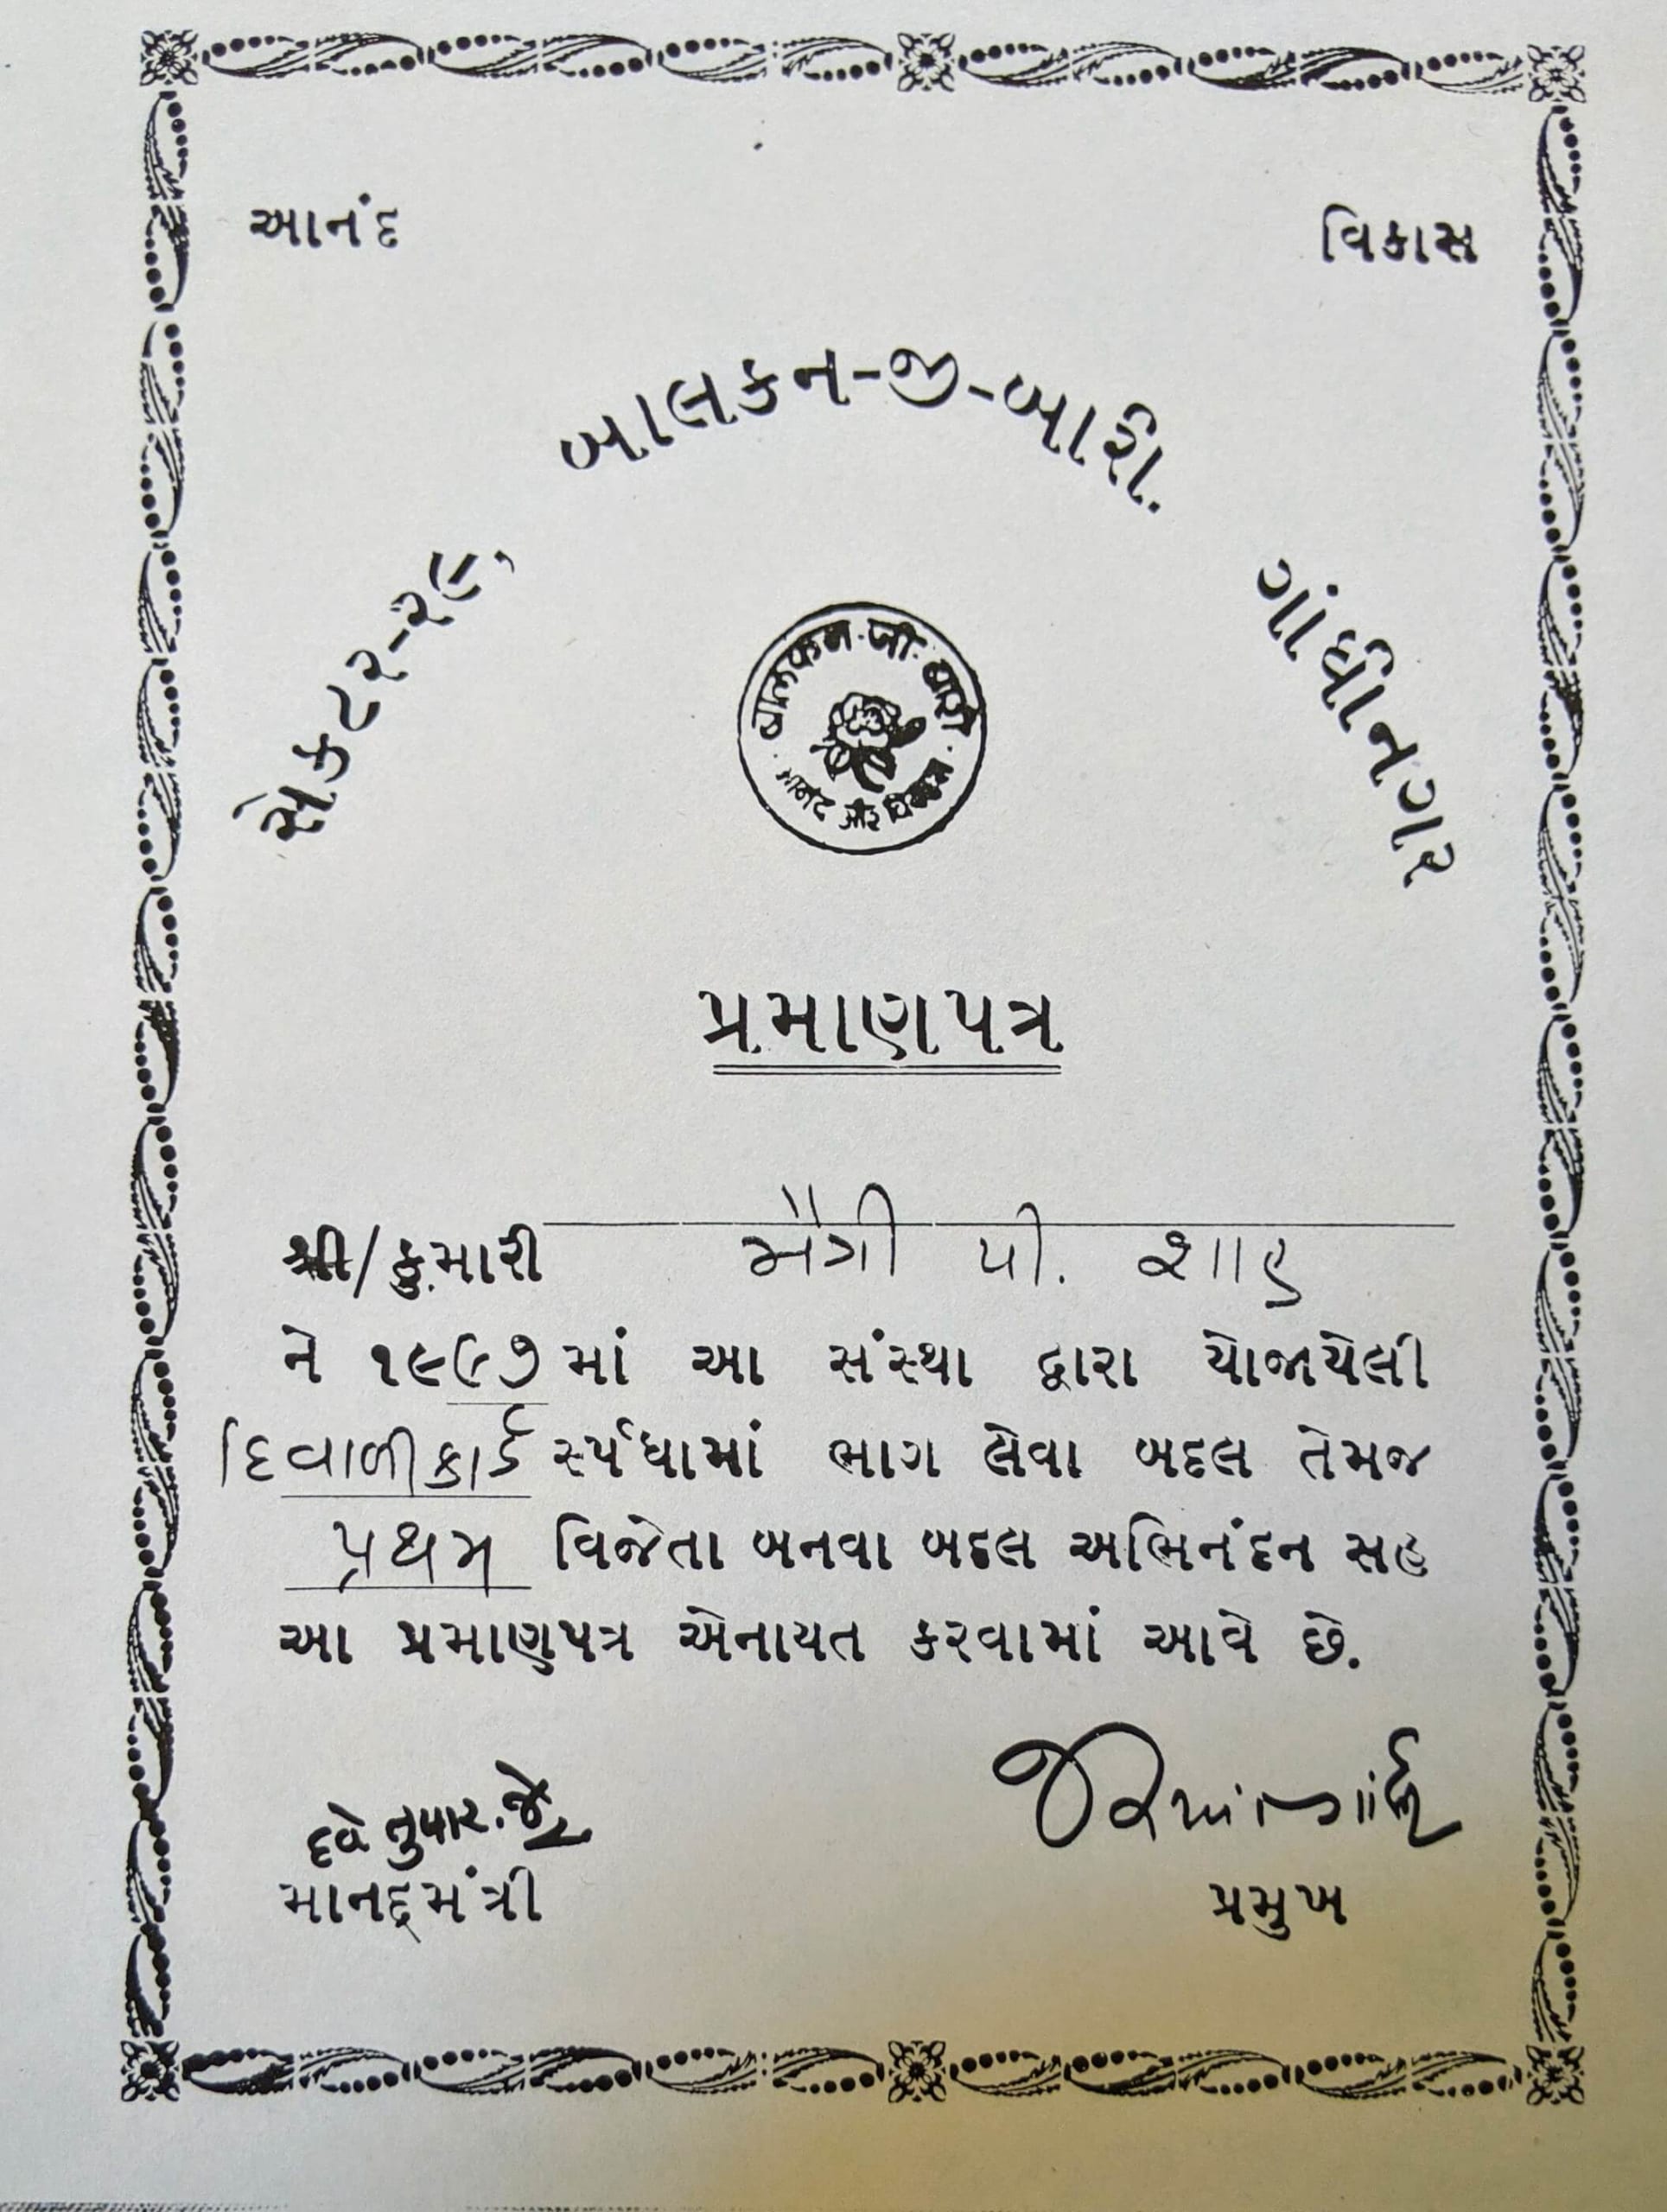 આનંદ
વિકાસ
સેકટર-૨૯,
બાલકન-જી-બારી.
ગાંધીનગર
बालकन.जी.बारी
आनंद और विकास
પ્રમાણપત્ર
શ્રી/કુ.મારી મૈત્રી પી. શાહ
ને ૧૯૯૭ માં આ સંસ્થા દ્વારા યોજાયેલી
દિવાળીકાર્ડ સ્પર્ધામાં ભાગ લેવા બદલ તેમજ
પ્રથમ વિજેતા બનવા બદલ અભિનંદન સહ
આ પ્રમાણપત્ર એનાયત કરવામાં આવે છે.
દવે તુષાર. જે
માનદ્દમંત્રી
પ્રમુખ